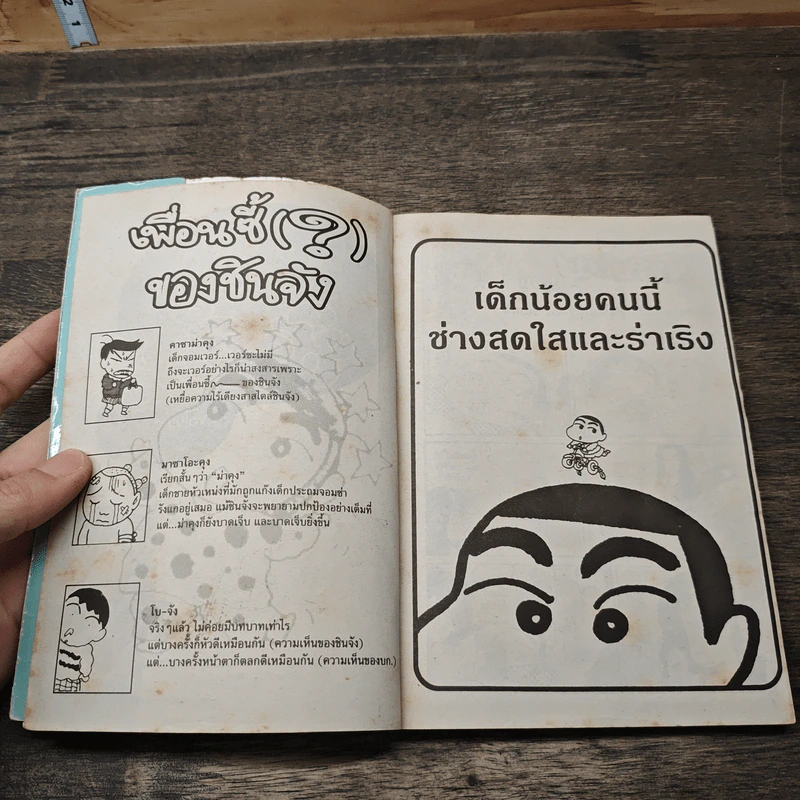 เพื่อนซี้ (?)
ของชินจัง
คาซาม่าคุง
เด็กจอมเวอร์...เวอร์ซะไม่มี
ถึงจะเวอร์อย่างไรก็น่าสงสารเพราะ
เป็นเพื่อนซี้ ของชินจัง
(เหยื่อความไร้เดียงสาสไตล์ชินจัง)
มาซาโอะคุง
เรียกสั้นๆว่า "ม่าคุง"
เด็กชายหัวเหน่งที่มักถูกแก๊งเด็กประถมจอมซ่า
รังแกอยู่เสมอ แม้ชินจังจะพยายามปกป้องอย่างเต็มที่
แต่...ม่าคุงก็ยังบาดเจ็บ และบาดเจ็บยิ่งขึ้น
โบ-จัง
จริงๆแล้ว ไม่ค่อยมีบทบาทเท่าไร
แต่บางครั้งก็หัวดีเหมือนกัน (ความเห็นของชินจัง)
แต่...บางครั้งหน้าตาก็ตลกดีเหมือนกัน (ความเห็นของบก.)
เด็กน้อยคนนี้
ช่างสดใสและร่าเริง
2 1